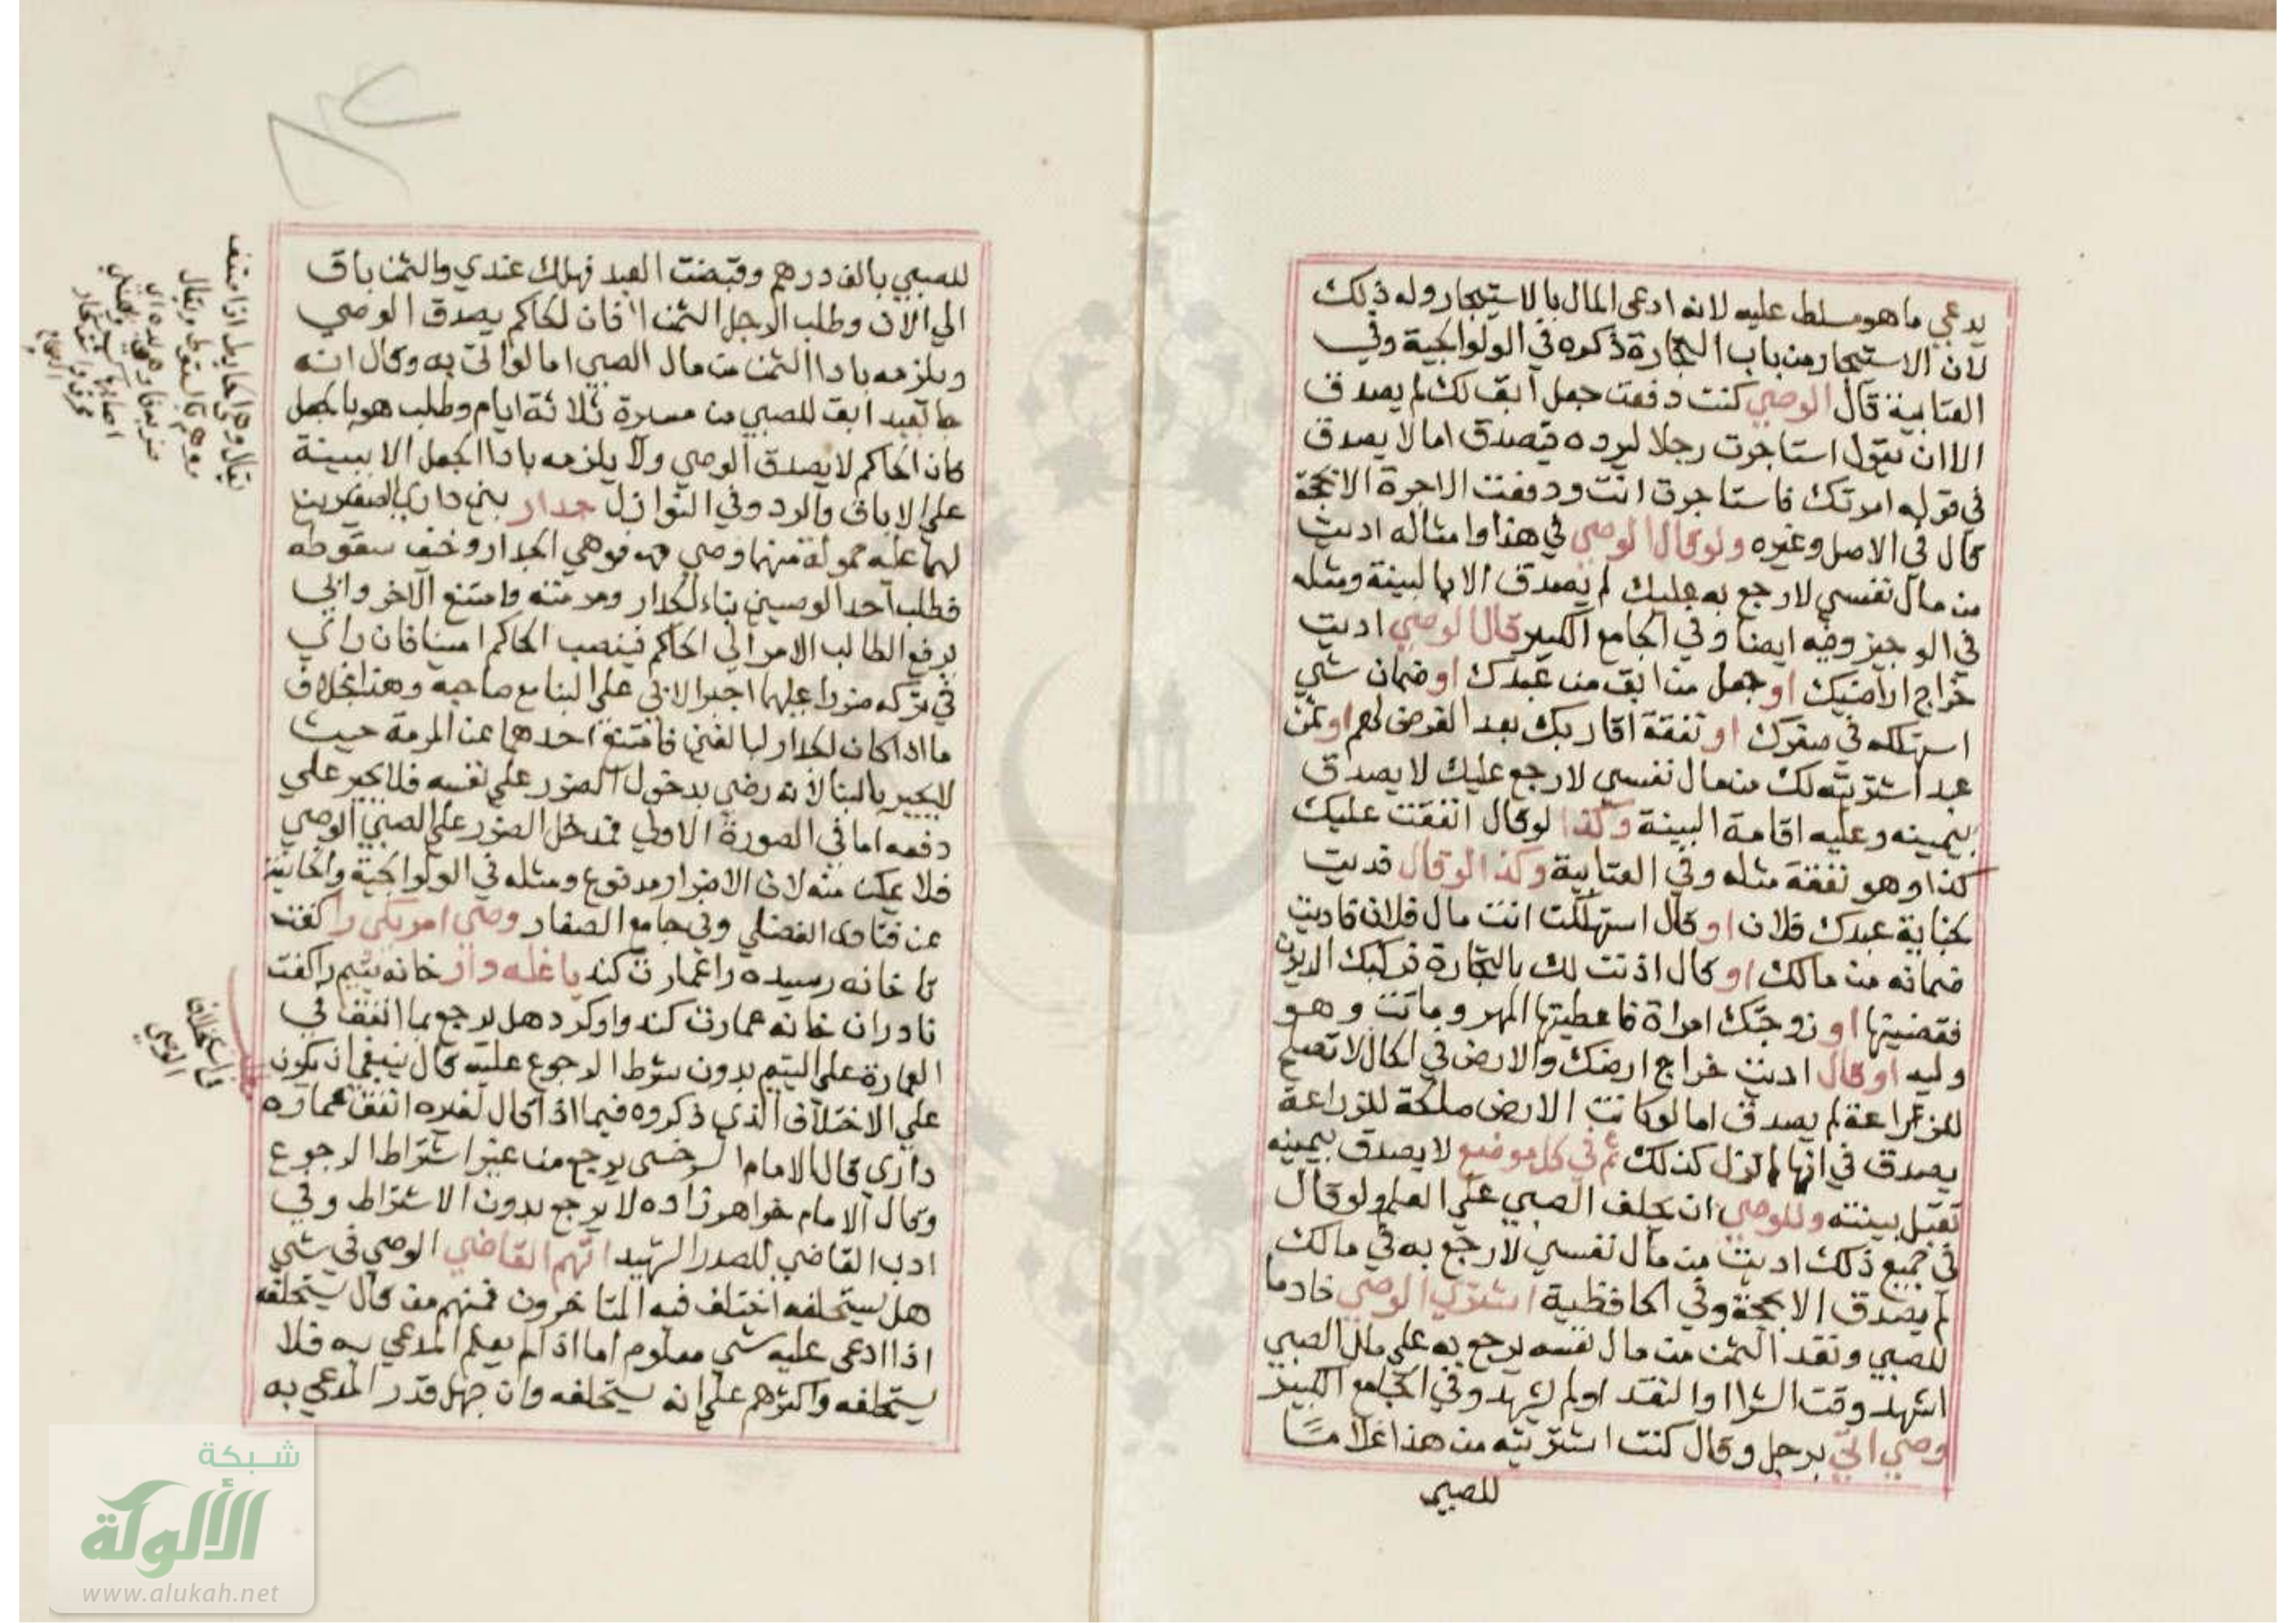 يدعي ما هو مسلط عليه لانه ادعى المال بالاستيجار وله ذلك
لان الاستيجار من باب التجارة ذكره في الولوالجية وفي
العتابية قال الوصي كنت دفعت جعل آبق لك لم يصدق
الا ان يقول استاجرت رجلا ليرده فيصدق اما لا يصدق
في قوله امرتك فاستاجرت انت ودفعت الاجرة الا بحجة
كال في الاصل وغيره ولو قال الوصي في هذا وامثاله اديت
من مال نفسي لارجع به عليك لم يصدق الا بالبينة ومثله
في الوجيز وفيه ايضا وفي الجامع الكبير قال الوصي اديت
خراج اراضيك او جعل من ابق من عبدك او ضمان شي
استهلكه في صغرك او نفقة اقاربك بعد الفرض لهم او ثمن
عبد اشتريته لك من مال نفسي لارجع عليك لا يصدق
بيمينه وعليه اقامة البينة وكذا لو قال انفقت عليك
كذا وهو نفقة مثله وفي العتابية وكذا لو قال فديت
بجناية عبدك فلان او قال استهلكت انت مال فلان فاديت
ضمانه من مالك او قال اذنت لك بالتجارة فركبك الديون
فقضيتها او زوجتك امراة فاعطيتها المهر وماتت وهو
وليه او قال اديت خراج ارضك والارض في الحال لا تصلح
للزراعة لم يصدق اما لو كانت الارض صالحة للزراعة
يصدق في انها لم تزل كذلك ثم في كل موضع لا يصدق بيمينه
تقبل بينته وللوصي ان يحلف الصبي على العلم ولو قال
في جميع ذلك اديت من مال نفسي لارجع به في مالك
لم يصدق الا بحجة وفي الحافظية اشترى الوصي خادما
للصبي ونقد الثمن من مال نفسه يرجع به على مال الصبي
اشهد وقت الشرا او النقد او لم يشهد وفي الجامع الكبير
وصي اتى برجل وقال كنت اشتريته من هذا غلاما
للصبي
للصبي بالف درهم وقبضت العبد فهلك عندي والثمن باق
الي الآن وطلب الرجل الثمن فان الحاكم يصدق الوصي
ويلزمه بادا الثمن من مال الصبي اما لو اتى به وقال انه
جا بعبد ابق للصبي من مسيرة ثلاثة ايام وطلب هو بالجعل
كان الحاكم لا يصدق الوصي ولا يلزمه بادا الجعل الا ببينة
على الاباق والرد وفي النوازل جدار بين داري الصغيرين
لهما عليه حمولة منهما وصي فوهي الجدار وخيف سقوطه
فطلب احد الوصيين بناء الجدار ومرمته وامتنع الآخر وابى
يرفع الطالب الامر الى الحاكم فينصب الحاكم امينا فان راي
في تركه ضررا عليهما اجبر الابي على البنا مع صاحبه وهذا بخلاف
ما اذا كان الجدار لبالغين فامتنع احدهما عن المرمة حيث
لا يجبر بالبنا لانه رضي بدخول الضرر على نفسه فلا يجبر على
دفعه اما في الصورة الاولي فمدخل الضرر على الصبي الوصي
فلا يمكن منه لان الاضرار مدفوع ومثله في الولوالجية والخانية
عن فتاوى الفضلي وفي جامع الصغار وصى امر يكى را كفت
تا خانه رسيده را عمارت كند يا غله واز خانه يتيم را كفت
تا دران خانه عمارت كند واو كرد هل يرجع بما انفق في
العمارة على اليتيم بدون شرط الرجوع عليه قال ينبغي ان يكون
على الاختلاف الذي ذكروه فيما اذا قال لغيره انفق عمارة
داري قال الامام السرخسي يرجع من غير اشتراط الرجوع
وقال الامام خواهر زاده لا يرجع بدون الاشتراط وفي
ادب القاضي للصدر الشهيد اتهم القاضي الوصي في شي
هل يستحلفه اختلف فيه المتاخرون فمنهم من قال يستحلفه
اذا ادعى عليه شي معلوم اما اذا لم يعلم المدعي به فلا
يستحلفه واكثرهم على انه يستحلفه وان جهل قدر المدعي به
في استحلاف
الوصي
شبكة
الألوكة
www.alukah.net